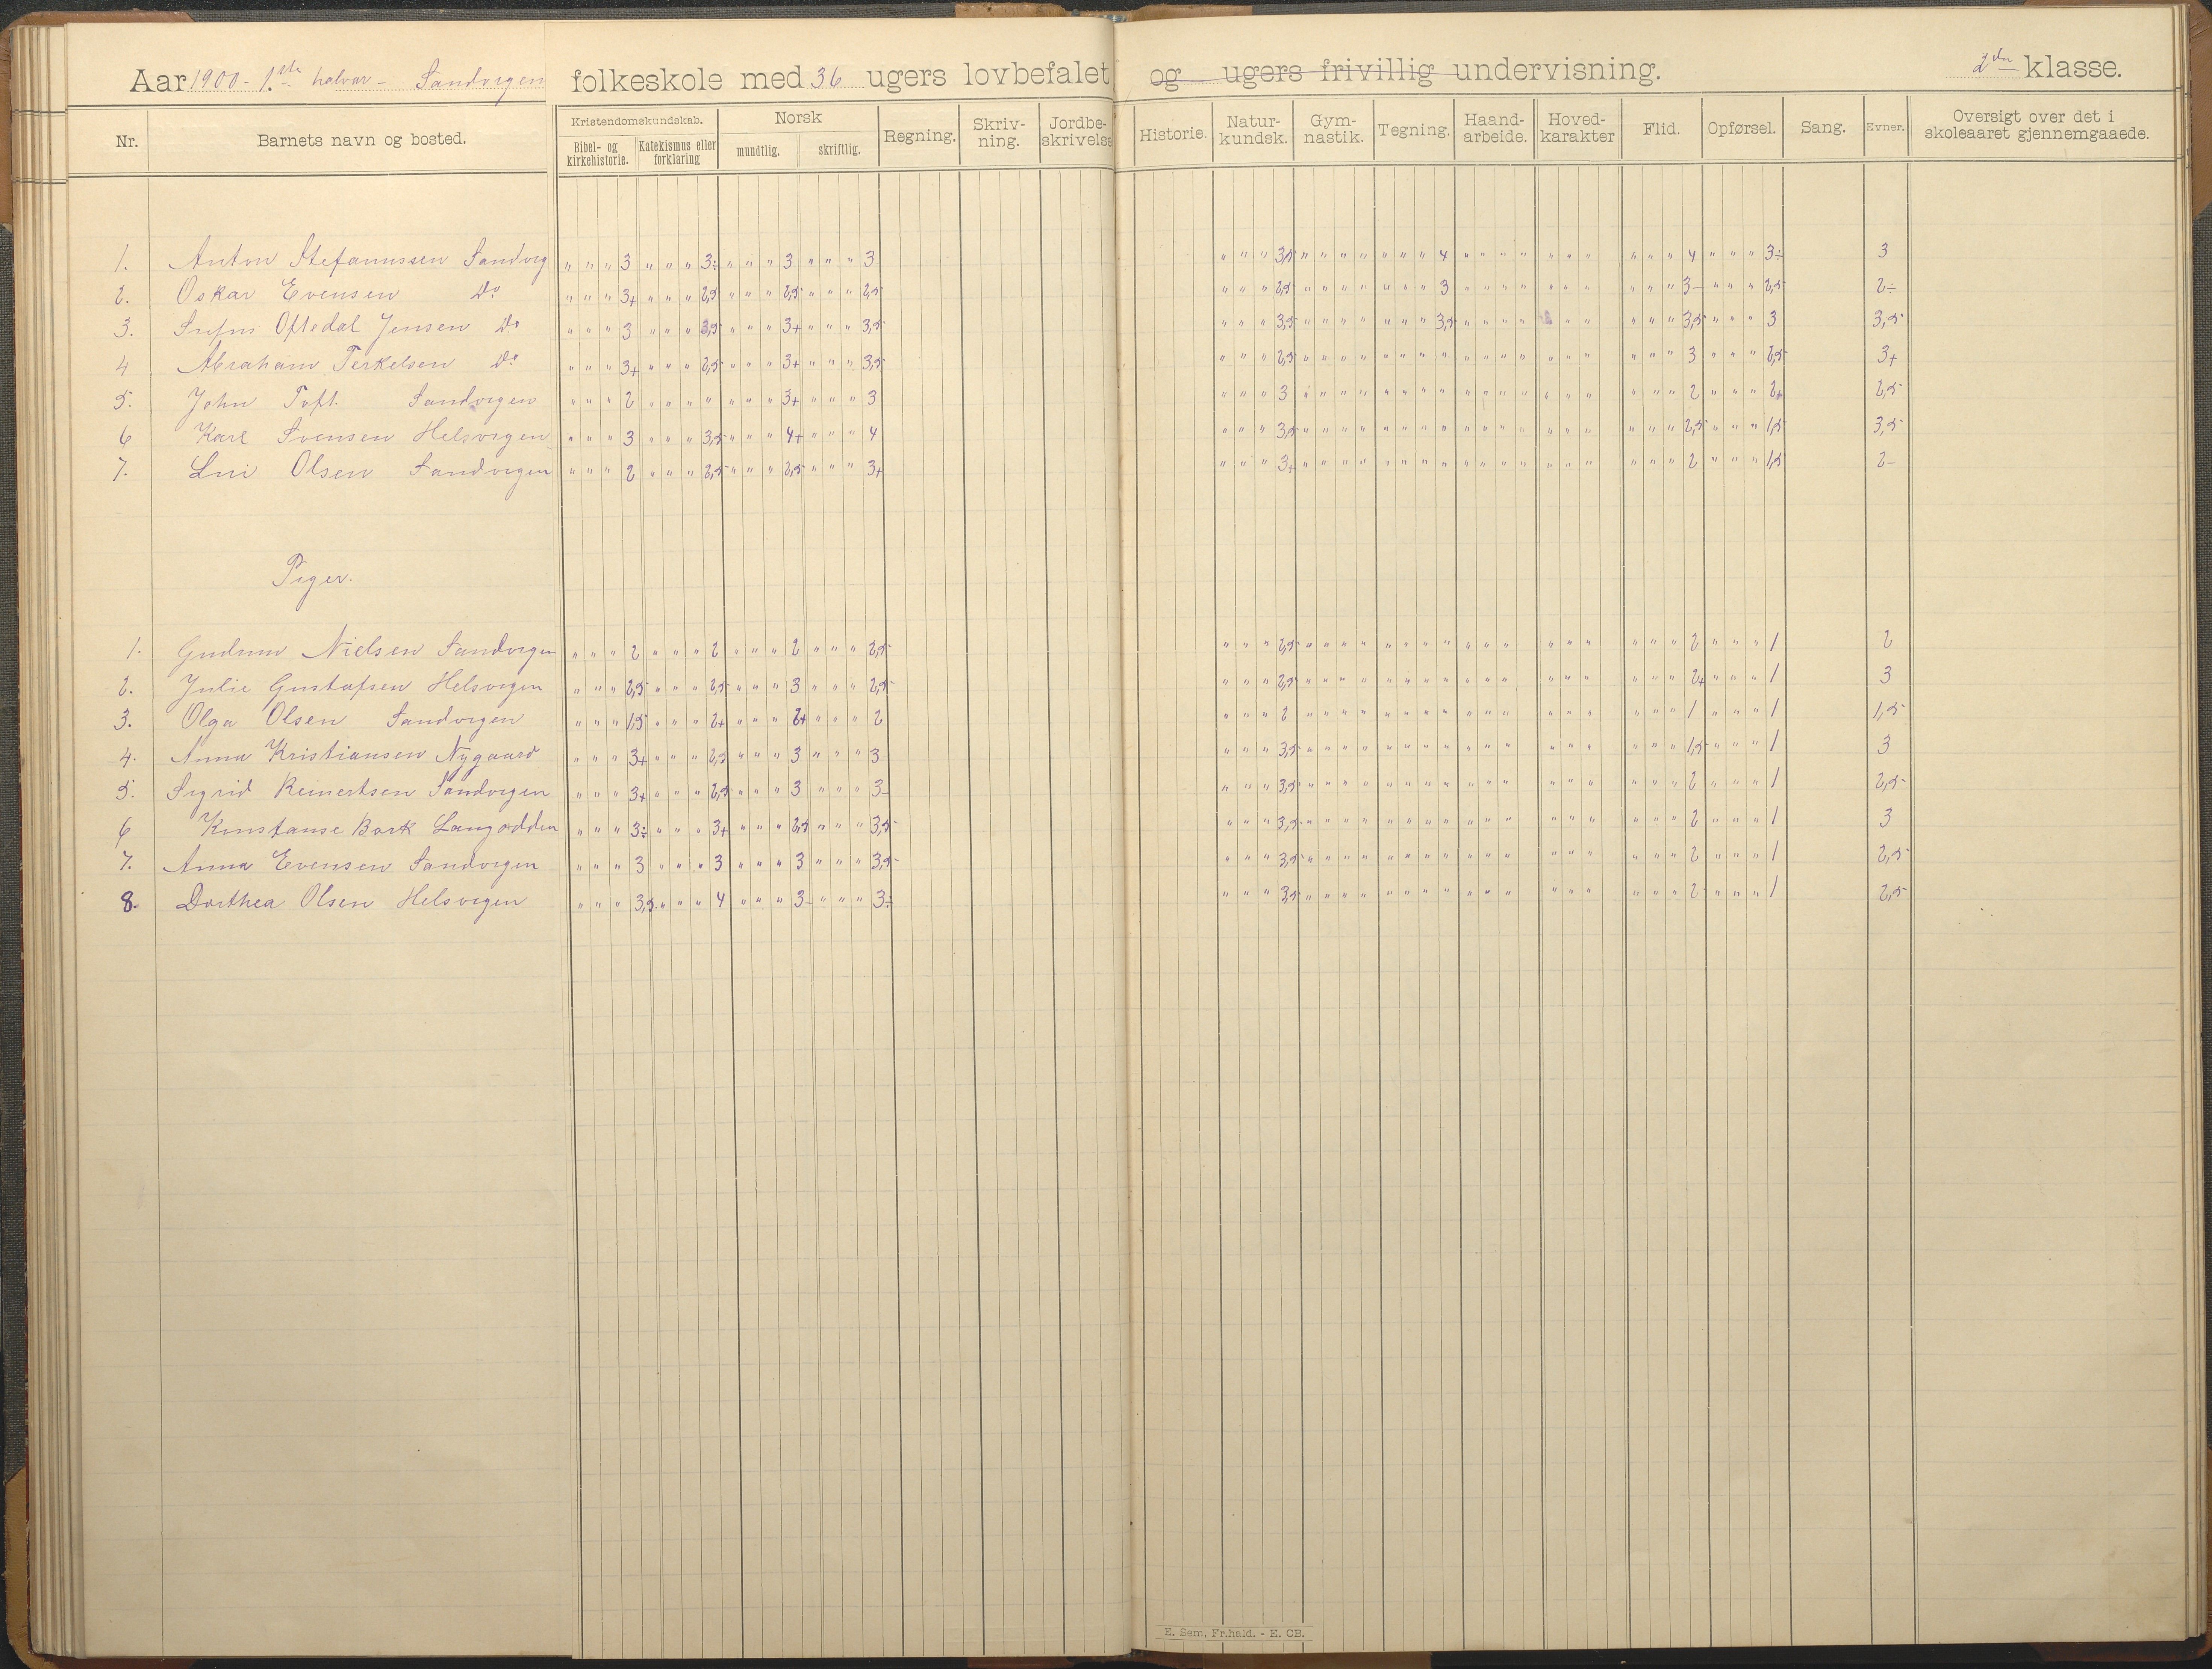 Aar 1900 - 1.ste halvar - Sandvigen folkeskole med 36 ugers lovbefalet og ugers frivillig undervisning. 2den klasse.
Nr. Barnets navn og bosted. Kristendomskundskab. Norsk Regning. Skriv-ning. Jordbe-skrivelse Historie. Natur-kundsk. Gym-nastik. Tegning. Haand-arbeide. Hoved-karakter Flid. Opførsel. Sang. Evner. Oversigt over det i skoleaaret gjennemgaaede.
Bibel- og kirkehistorie. Katekismus eller forklaring mundtlig. skriftlig.
1. Anton Stefanussen Sandvig " " " 3 " " " 3÷ " " " 3 " " " 3 " " " 3,5 " " " " " " " 4 " " " " " " " " " " 4 " " " 3÷ 3
2. Oskar Evensen Do " " " 3+ " " " 2,5 " " " 2,5 " " " 2,5 " " " 2,5 " " " " " " " 3 " " " " " " " " " " 3- " " " 2,5 2÷
3. Oftedal Jensen Do " " " 3 " " " 3,5 " " " 3+ " " " 3,5 " " " 3,5 " " " " " " " 3,5 " " " " " " " " " 3,5 " " " 3 3,5
4 Abraham Terkelsen Do " " " 3+ " " " 2,5 " " " 3+ " " " 3,5 " " " 2,5 " " " " " " " " " " " " " " " " " " 3 " " " 2,5 3+
5. John Toft. Sandvigen " " " 2 " " " " " " " 3+ " " " 3 " " " 3 " " " " " " " " " " " " " " " " " " 2 " " " 2+ 2,5
6 Karl Svensen Helsvigen " " " 3 " " " 3,5 " " " 4+ " " " 4 " " " 3,5 " " " " " " " " " " " " " " " " " " 2,5 " " " 1,5 3,5
7. Olsen Sandvigen " " " 2 " " " 2,5 " " " 2,5 " " " 3+ " " " 3+ " " " " " " " " " " " " " " " " " " 2 " " " 1,5 2-
Piger.
1. Gudrun Nielsen Sandvigen " " " 2 " " " 2 " " " 2 " " " 2,5 " " " 2,5 " " " " " " " " " " " " " " " " " 2 " " " 1 2
2. Julie Gustafsen Helsvigen " " " 2,5 " " " 2,5 " " " 3 " " " 2,5 " " " 2,5 " " " " " " " " " " " " " " " " " 2+ " " " 1 3
3. Olga Olsen Sandvigen " " " 1,5 " " " 2+ " " " 2+ " " " 2 " " " 2 " " " " " " " " " " " " " " " " " 1 " " " 1 1,5
4. Anna Kristiansen Nygaard " " " 3+ " " " 2,5 " " " 3 " " " 3 " " " 3,5 " " " " " " " " " " " " " " " " " 1,5 " " " 1 3
5. Sigrid Reinertsen Sandvigen " " " 3+ " " " 2,5 " " " 3 " " " 3- " " " 3,5 " " " " " " " " " " " " " " " " " 2 " " " 1 2,5
6 Konstanse Bork Langodden " " " 3÷ " " " 3+ " " " 2,5 " " " 3,5 " " " 3,5 " " " " " " " " " " " " " " " " " 2 " " " 1 3
7. Anna Evensen Sandvigen " " " 3 " " " 3 " " " 3 " " " 3,5 " " " 3,5 " " " " " " " " " " " " " " " " " 2 " " " 1 2,5
8. Dorthea Olsen Helsvigen " " " 3,5 " " " 4 " " " 3- " " " 3÷ " " " 3,5 " " " " " " " " " " " " " " " " " 2 " " " 1 2,5
E. Sem, Fr.hald. - E. CB.